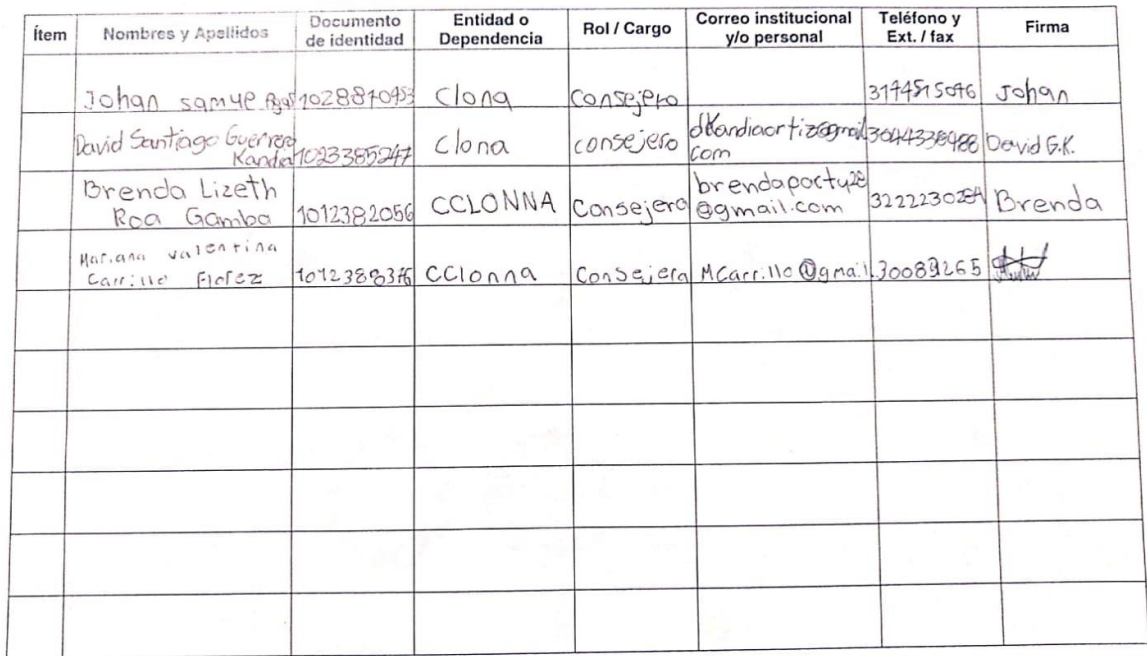 Ítem Nombres y Apellidos Documento de identidad Entidad o Dependencia Rol / Cargo Correo institucional y/o personal Teléfono y Ext. / fax Firma
Johan samue 1028870453 Clona Consejero Johan
David Santiago Guerrero Kandia 1023385247 Clona consejero dkandiaortiz@gmail.com David G.K.
Brenda Lizeth Roa Gamba 1012382056 CCLONNA Consejera @gmail.com Brenda
Mariana valentina Carrillo Florez CClonna Consejera MCarrillo@gmail.